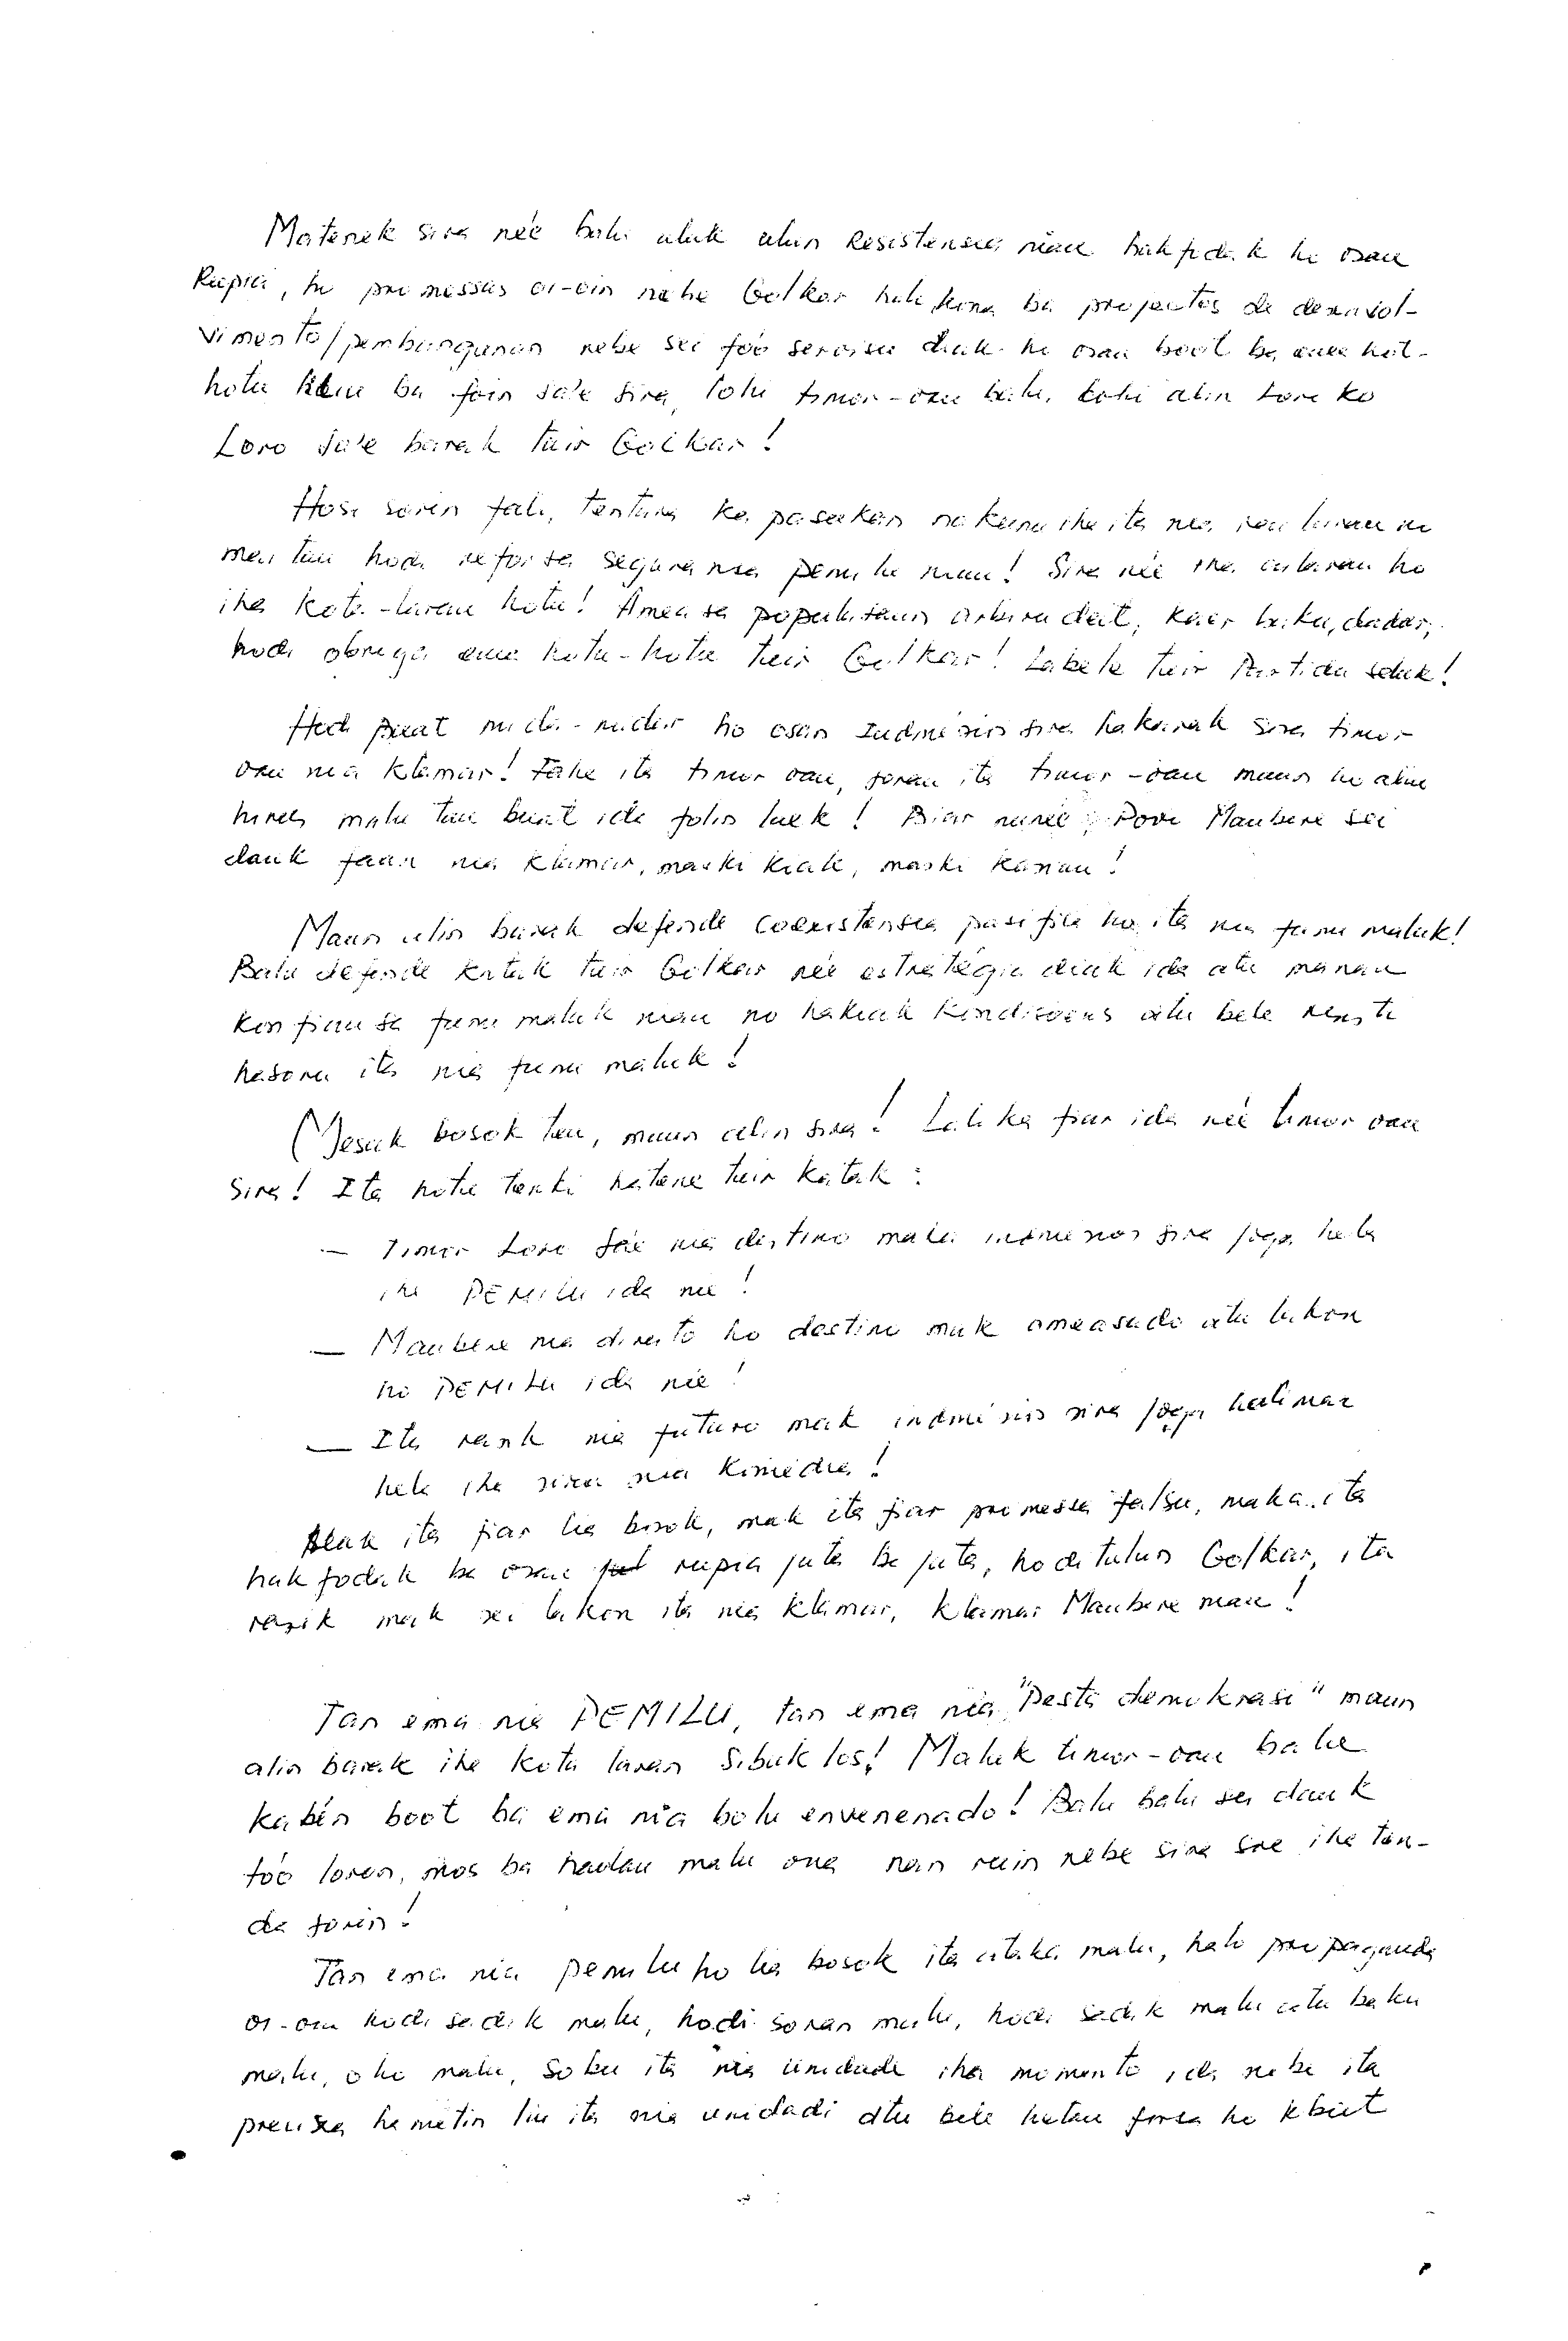 Matenek sira neé balu uluk alin Resistensia nian hakfodak ho osan
Rupia, ho promessas oi-oin nebe Golkar halo kona ba projectos de desenvol-
vimento/pembangunan nebe sei foó servisu diak ho osan boot ba ema hot-
hotu liliu ba foin sa'e sira, lohi timor-oan balu, lohi alin Loro ko
Loro Sa'e barak tuir Golkar!
Hosi sorin fali, tentara ko pasukan nakonu iha ita nia rai laran
mai tau hodi reforsa seguransa pemilu nian! Sira neé iha ailaran ho
iha kota-laran hotu! Ameasa populasaun arbiru deit, kaer baku, dadur,
hodi obriga ema hotu-hotu tuir Golkar! Labele tuir Partidu seluk!
Hodi kilat nudar ho osan Indonésios sira hakarak sosa timor
oan nia klamar! Fahe ita timor oan, soran ita timor-oan maun ho alin
hirus malu tau buat ida folin laek! Biar nuneé, Povo Maubere sei
dauk faan nia klamar, maski kiak, maski kanan!
Maun alin barak defende coexistensia pasifica ho ita nia funu maluk!
Balu defende katak tuir Golkar neé estratégia diak ida atu manan
konfiansa funu maluk nian no hakiak kondisoens atu bele resisti
hasoru ita nia funu maluk!
Mesak bosok ten, maun alin sira! Lalika fiar ida neé timor oan
sira! Ita hotu tenki hatene tuir katak:
— Timor Loro Sáe nia destino mak indonésios sira joga hela
iha PEMILU ida neé!
— Maubere nia direito ho destino mak ameasado atu lakon
ho PEMILU ida neé!
— Ita rasik nia futuro mak indonésios sira joga halimar
hela iha sira nia komédia!
Mak ita fiar lia bosok, mak ita fiar promessa falsu, maka ita
hakfodak ba osan rupia juta ba juta, hodi tulun Golkar, ita
rasik mak sei lakon ita nia klamar, klamar Maubere nian!
Tan ema nia PEMILU, tan ema nia "Pesta demokrasi" maun
alin barak iha kota laran sibuk los! Maluk timor-oan balu
kabén boot ba ema nia bolu envenenado! Balu balu sei dauk
toó loron, mos ba hadau malu ona nan ruin nebe sira soe iha ton-
da forin!
Tan ema nia pemilu ho lia bosok ita ataka malu, halo propaganda
oi-oin hodi sadik malu, hodi soran malu, hodi sadik malu atu baku
malu, oho malu, sobu ita nia unidade iha momento ida nebe ita
precisa hametin liu ita nia unidadi atu bele hetan forsa ho kbiit